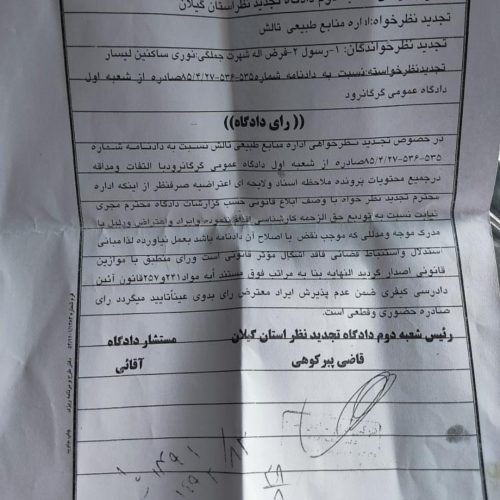 دادگاه تجدید نظر استان گیلان
تجدید نظر خواه: اداره منابع طبیعی تالش
تجدید نظر خواندگان: ۱-رسول ۲-فرض اله شهرت جملگی: نوری ساکنین لیسار
تجدیدنظرخواسته: نسبت به دادنامه شماره ۵۳۵-۵۳۶-۸۵/۴/۲۷صادره از شعبه اول
دادگاه عمومی گرگانرود
(( رای دادگاه))
در خصوص تجدید نظرخواهی اداره منابع طبیعی تالش نسبت به دادنامه شماره
۵۳۵-۵۳۶-۸۵/۴/۲۷صادره از شعبه اول دادگاه عمومی گرگانرودبا التفات ومداقه
درجمیع محتویات پرونده ملاحظه اسناد ولایحه ای اعتراضیه صرفنظر از اینکه اداره
محترم تجدید نظر خواه با وصف ابلاغ قانونی حسب گزارشات دادگاه محترم مجری
نیابت نسبت به تودیع حق الزحمه کارشناسی ننموده وایراد واعتراض ودلیل یا
مدرک موجه ومدللی که موجب نقض یا اصلاح آن دادنامه باشد بعمل نیاورده لذا مبانی
استدلال واستنباط قضائی فاقد اشکال موثر قانونی است ورای منطبق با موازین
قانونی اصدار گردید النهایه بنا به مراتب فوق مستند أبه مواد۲۴۱و۲۵۷قانون آئین
دادرسی کیفری ضمن عدم پذیرش ایراد معترض رای بدوی عیناًتایید میگردد رای
صادره حضوری وقطعی است.
رئیس شعبه دوم دادگاه تجدید نظر استان گیلان مستشار دادگاه
قاضی پیرکوهی آقائی